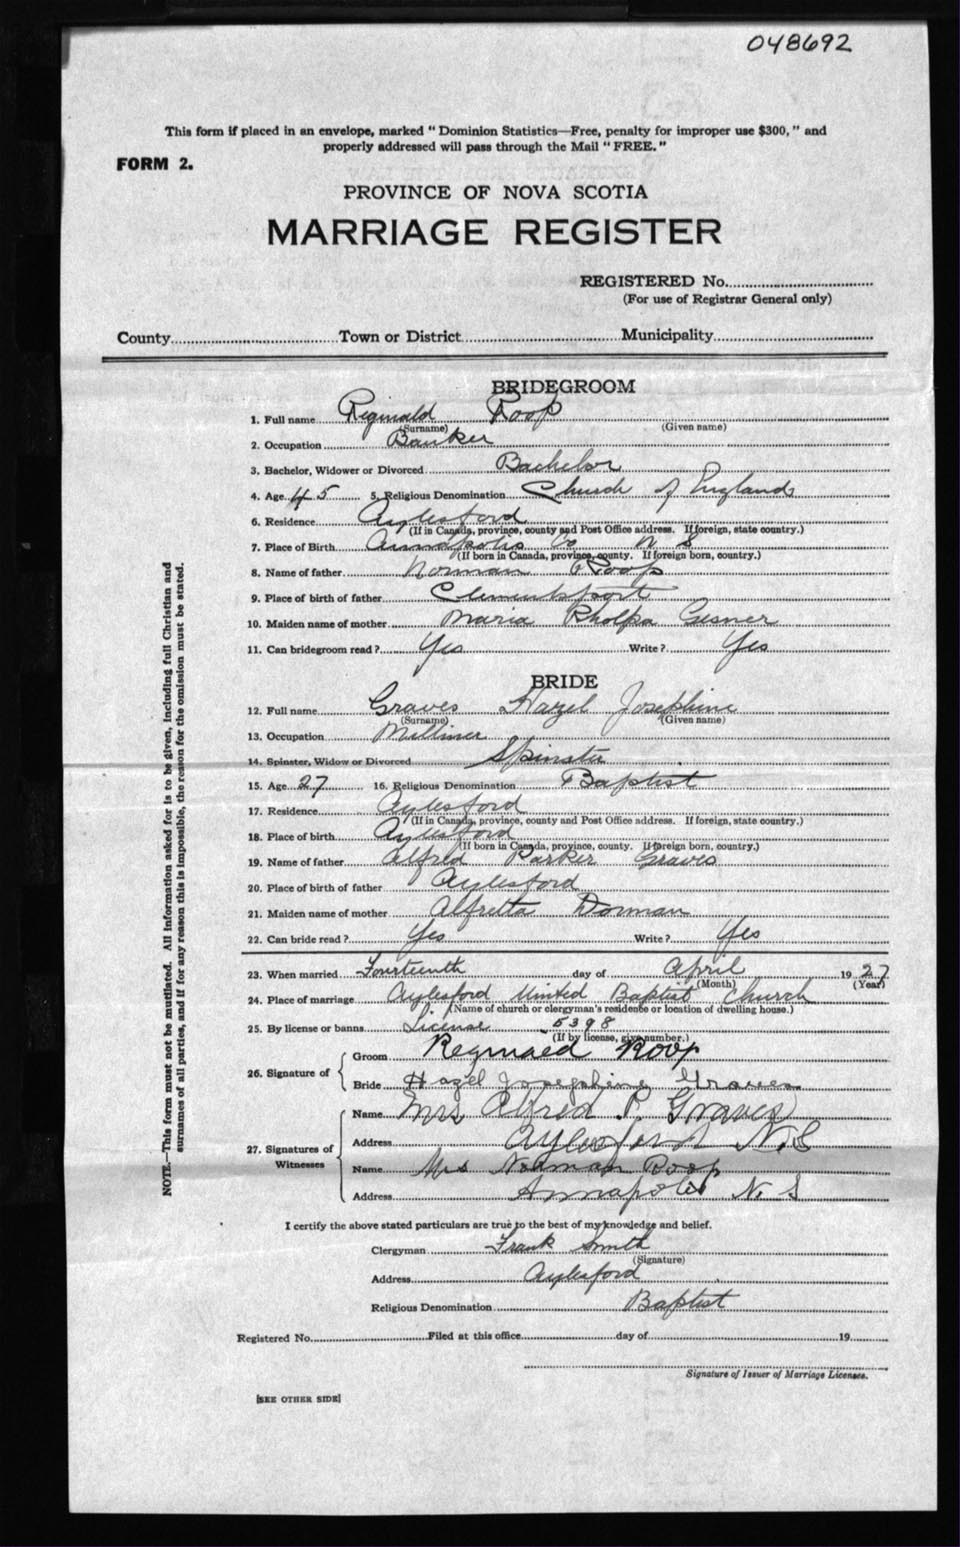 048692
This form if placed in an envelope, marked "Dominion Statistics—Free, penalty for improper use $300," and
properly addressed will pass through the Mail "FREE."
FORM 2.
PROVINCE OF NOVA SCOTIA
MARRIAGE REGISTER
REGISTERED No.
(For use of Registrar General only)
County Town or District Municipality
BRIDEGROOM
1. Full name Reginald Roop
(Surname) (Given name)
2. Occupation Banker
3. Bachelor, Widower or Divorced Bachelor
4. Age 45 5. Religious Denomination Church of England
6. Residence Aylesford
(If in Canada, province, county and Post Office address. If foreign, state country.)
7. Place of Birth Annapolis Co N S
(If born in Canada, province, county. If foreign born, country.)
8. Name of father Norman Roop
9. Place of birth of father Clementsport
10. Maiden name of mother Maria Gesner
11. Can bridegroom read? Yes Write? Yes
BRIDE
12. Full name Graves Hazel Josephine
(Surname) (Given name)
13. Occupation Milliner
14. Spinster, Widow or Divorced Spinster
15. Age 27 16. Religious Denomination Baptist
17. Residence Aylesford
(If in Canada, province, county and Post Office address. If foreign, state country.)
18. Place of birth Aylesford
(If born in Canada, province, county. If foreign born, country.)
19. Name of father Alfred Parker Graves
20. Place of birth of father Aylesford
21. Maiden name of mother Alfretta Dorman
22. Can bride read? Yes Write? Yes
23. When married Fourteenth day of April 1927
(Month) (Year)
24. Place of marriage Aylesford United Baptist Church
(Name of church or clergyman's residence or location of dwelling house.)
25. By license or banns License 5398
(If by license, give number.)
26. Signature of Groom Reginald Roop
Bride Hazel Josephine Graves
27. Signatures of Witnesses Name Mrs Alfred P. Graves
Address Aylesford N.S
Name Mrs Norman Roop
Address Annapolis N. S
I certify the above stated particulars are true to the best of my knowledge and belief.
Clergyman Frank Smith
(Signature)
Address Aylesford
Religious Denomination Baptist
Registered No. Filed at this office day of 19
Signature of Issuer of Marriage Licenses.
[SEE OTHER SIDE]
NOTE.—This form must not be mutilated. All information asked for is to be given, including full Christian and
surnames of all parties, and if for any reason this is impossible, the reason for the omission must be stated.